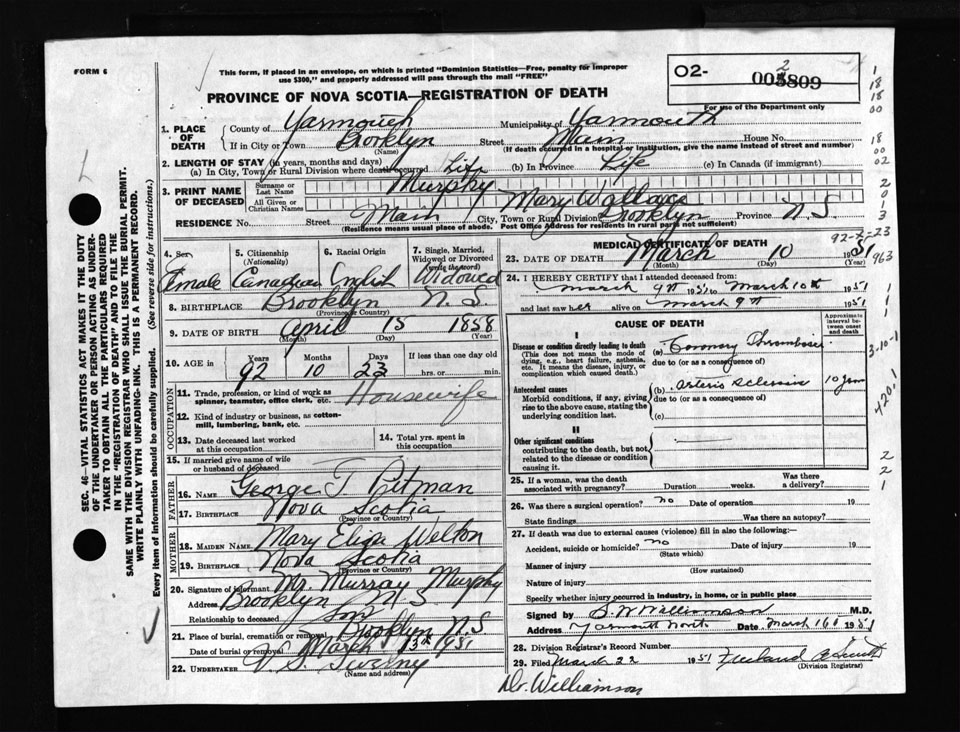 FORM 6
This form, if placed in an envelope, on which is printed "Dominion Statistics—Free, penalty for improper
use $300," and properly addressed will pass through the mail "FREE"
O2- 2
005809
PROVINCE OF NOVA SCOTIA—REGISTRATION OF DEATH
For use of the Department only
1. PLACE OF DEATH
County of Yarmouth Municipality of Yarmouth
If in City or Town Brooklyn Street Main House No.
(Name) (If death occurred in a hospital or institution, give the name instead of street and number)
2. LENGTH OF STAY (in years, months and days)
(a) In City, Town or Rural Division where death occurred Life (b) In Province Life (c) In Canada (if immigrant)
3. PRINT NAME OF DECEASED
Surname or Last Name Murphy
All Given or Christian Names Mary Wallace
RESIDENCE No. Street Main City, Town or Rural Division Brooklyn Province N.S.
(Residence means usual place of abode. Post Office Address for residents in rural parts not sufficient)
4. Sex 5. Citizenship (Nationality) 6. Racial Origin 7. Single, Married, Widowed or Divorced (write the word)
Female Canadian English Widowed
8. BIRTHPLACE Brooklyn N.S.
(Province or Country)
9. DATE OF BIRTH April 15 1858
(Month) (Day) (Year)
10. AGE in Years Months Days If less than one day old
92 10 23 hrs. or min.
OCCUPATION
11. Trade, profession, or kind of work as
spinner, teamster, office clerk, etc. Housewife
12. Kind of industry or business, as cotton-
mill, lumbering, bank, etc.
13. Date deceased last worked
at this occupation
14. Total yrs. spent in
this occupation
15. If married give name of wife
or husband of deceased
FATHER
16. NAME George T. Pitman
17. BIRTHPLACE Nova Scotia
(Province or Country)
MOTHER
18. MAIDEN NAME Mary Eliza Welton
19. BIRTHPLACE Nova Scotia
(Province or Country)
20. Signature of informant Mr. Murray Murphy
Address Brooklyn N.S.
Relationship to deceased Son
21. Place of burial, cremation or removal Brooklyn N.S
Date of burial or removal March 13th 1951
22. UNDERTAKER V. S. Sweeny
(Name and address)
MEDICAL CERTIFICATE OF DEATH
23. DATE OF DEATH March 10 1951
(Month) (Day) (Year)
24. I HEREBY CERTIFY that I attended deceased from:
March 9th 1951 to March 10th 1951
and last saw her alive on March 9th 1951
CAUSE OF DEATH
Approximate interval between onset and death
I
Disease or condition directly leading to death
(This does not mean the mode of
dying, e.g., heart failure, asthenia,
etc. It means the disease, injury, or
complication which caused death.)
(a) Coronary Thrombosis
due to (or as a consequence of)
Antecedent causes
Morbid conditions, if any, giving
rise to the above cause, stating the
underlying condition last.
(b) arterio sclerosis 10 years
due to (or as a consequence of)
(c)
II
Other significant conditions
contributing to the death, but not
related to the disease or condition
causing it.
25. If a woman, was the death
associated with pregnancy? Duration weeks. Was there
a delivery?
26. Was there a surgical operation? no Date of operation 19
State findings Was there an autopsy?
27. If death was due to external causes (violence) fill in also the following:—
Accident, suicide or homicide? no Date of injury 19
(State which)
Manner of injury
(How sustained)
Nature of injury
Specify whether injury occurred in industry, in home, or in public place
Signed by S. W. Williamson M.D.
Address Yarmouth North Date March 16th 1951
28. Division Registrar's Record Number
29. Filed March 22 1951
(Division Registrar)
Dr. Williamson
SEC. 46—VITAL STATISTICS ACT MAKES IT THE DUTY
OF THE UNDERTAKER OR PERSON ACTING AS UNDER-
TAKER TO OBTAIN ALL THE PARTICULARS REQUIRED
IN THE "REGISTRATION OF DEATH" AND TO FILE THE
SAME WITH THE DIVISION REGISTRAR WHO SHALL ISSUE THE BURIAL PERMIT.
WRITE PLAINLY WITH UNFADING-INK. THIS IS A PERMANENT RECORD.
Every item of information should be carefully supplied. (See reverse side for instructions.)
1
18
18
00
18
00
02
2
0
1
3
92-2-23
963
1
1
1
3-10-1
4201
2
2
1